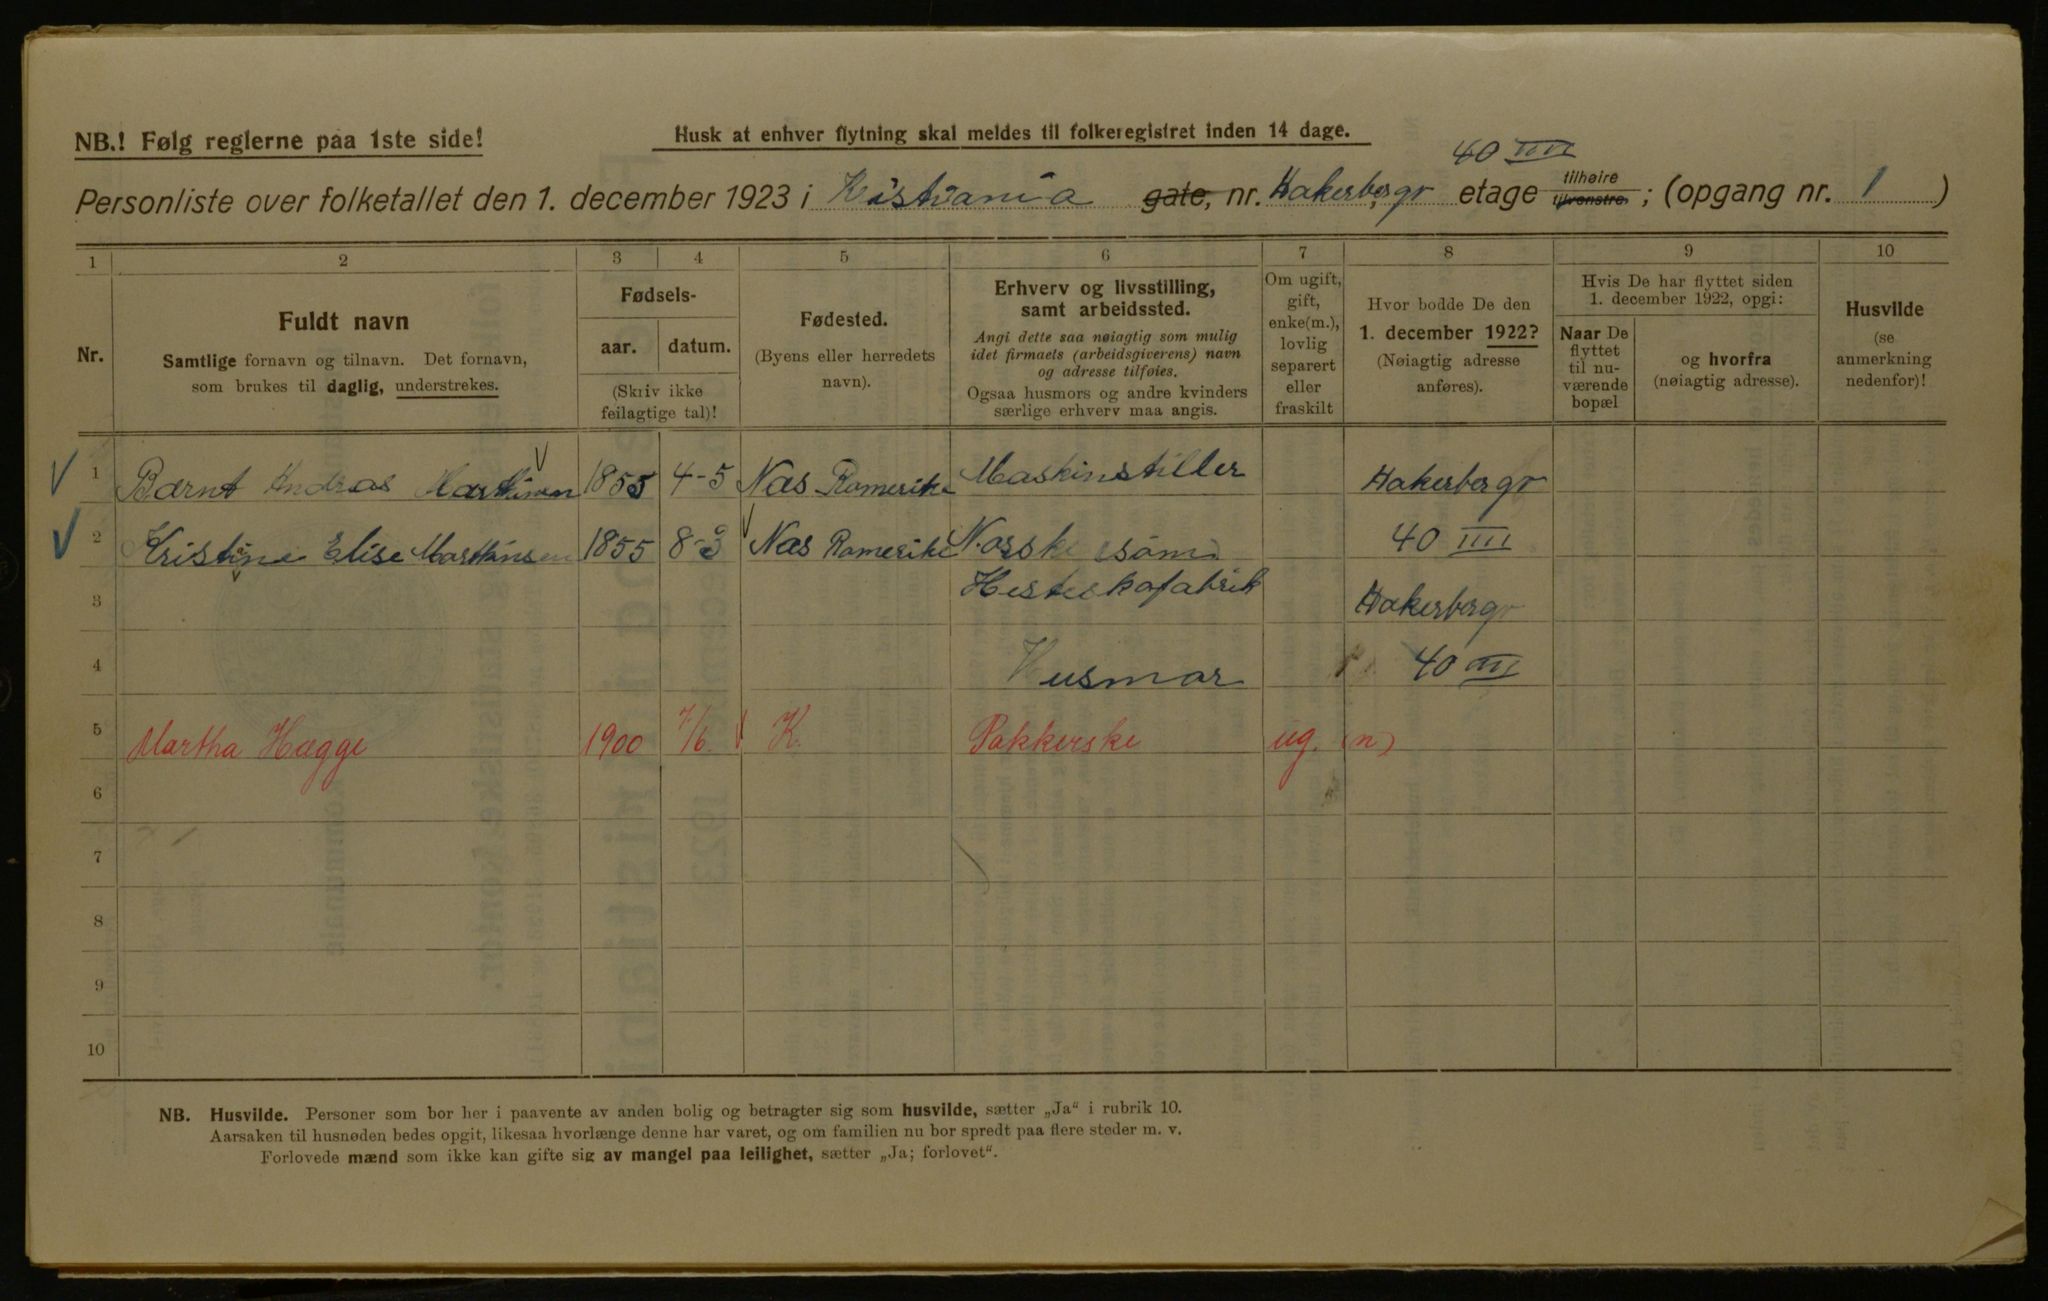 NB.! Følg reglerne paa 1ste side!
Husk at enhver flytning skal meldes til folkeregistret inden 14 dage.
40 IIII
Personliste over folketallet den 1. december 1923 i Kistiania gate, nr. Hakerbergv etage tilhøire tilvenstre ; (opgang nr. 1 )
1 2 3 4 5 6 7 8 9 10
Nr.
Fuldt navn
Samtlige fornavn og tilnavn. Det fornavn,
som brukes til daglig, understrekes.
Fødsels-
aar. datum.
(Skriv ikke
feilagtige tal)!
Fødested.
(Byens eller herredets
navn).
Erhverv og livsstilling,
samt arbeidssted.
Angi dette saa nøiagtig som mulig
idet firmaets (arbeidsgiverens) navn
og adresse tilføies.
Ogsaa husmors og andre kvinders
særlige erhverv maa angis.
Om ugift,
gift,
enke(m.),
lovlig
separert
eller
fraskilt
Hvor bodde De den
1. december 1922?
(Nøiagtig adresse
anføres).
Hvis De har flyttet siden
1. december 1922, opgi:
Naar De
flyttet
til nu-
værende
bopæl
og hvorfra
(nøiagtig adresse).
Husvilde
(se
anmerkning
nedenfor)!
1 Bærnt Andras Marthinsen 1855 4-5 Næs Romerike Maskinstiller Hakerbergv
2 Kristine Elise Marthinsen 1855 8-3 Næs Romerike Norske søm 40 IIII
3 Hesteskofabrik Hakerbergv
4 Husmor 40 III
5 Martha Hegge 1900 7/6. K. Pakkerske ug. (n)
6
7
8
9
10
NB. Husvilde. Personer som bor her i paavente av anden bolig og betragter sig som husvilde, sætter „Ja“ i rubrik 10.
Aarsaken til husnøden bedes opgit, likesaa hvorlænge denne har varet, og om familien nu bor spredt paa flere steder m. v.
Forlovede mænd som ikke kan gifte sig av mangel paa leilighet, sætter „Ja; forlovet“.